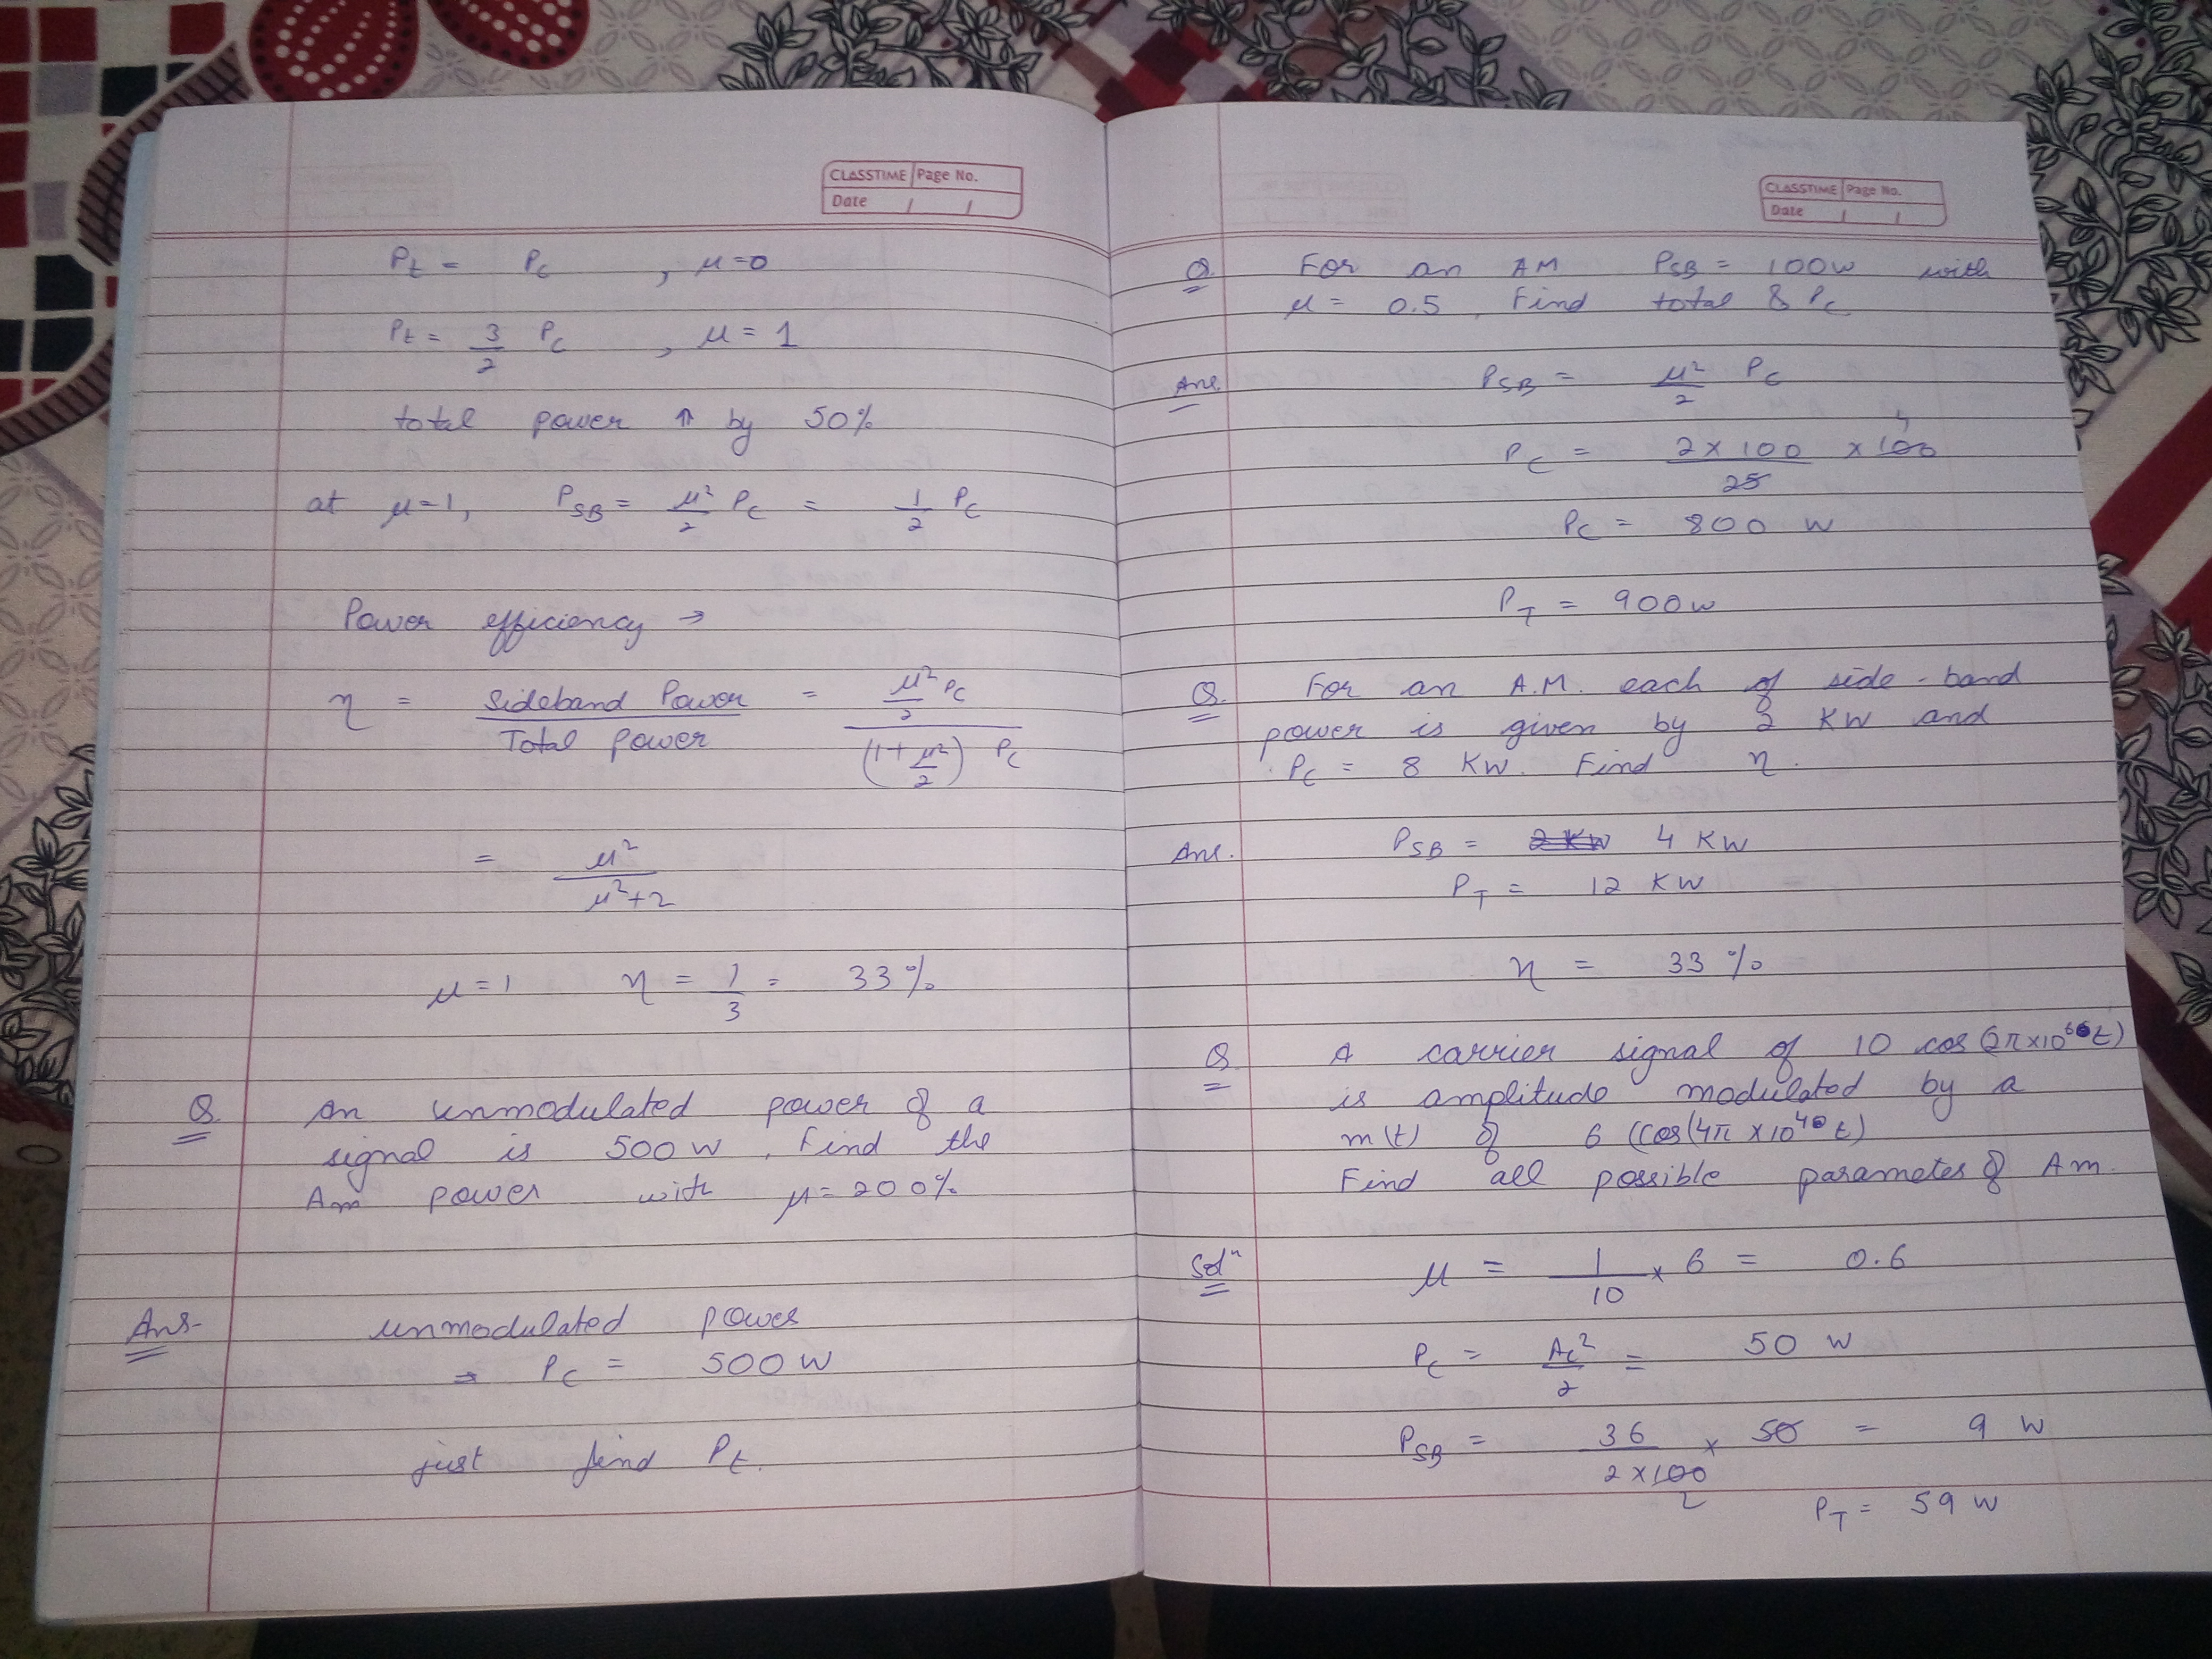 CLASSTIME Page No.
Date / /
Pt = Pc , μ=0
Pt = 3/2 Pc , μ = 1
total power ⇑ by 50%
at μ=1, PSB = μ²/2 Pc = 1/2 Pc
Power efficiency →
η = Sideband Power / Total power = μ²/2 Pc / (1+μ²/2) Pc
= μ² / μ²+2
μ=1 η = 1/3 = 33%
Q. An unmodulated power of a
signal is 500 W. Find the
Am power with μ=200%
Ans- unmodulated power
→ Pc = 500 W
just find Pt.
CLASSTIME Page No.
Date / /
Q. For an AM PSB = 100W with
μ = 0.5, Find total & Pc
Ans. PSB = μ²/2 Pc
4
Pc = 2 x 100 / 25 x 100
Pc = 800 W
PT = 900 W
Q. For an A.M. each of side-band
power is given by 2 KW and
Pc = 8 KW. Find η.
Ans. PSB = 2 KW 4 KW
PT = 12 KW
η = 33 %
Q A carrier signal of 10 cos (2π×10⁶t)
is amplitude modulated by a
m(t) of 6 (cos(4π ×10⁴t)
Find all possible parametes of Am.
Solⁿ μ = 1/10 x 6 = 0.6
Pc = Ac²/2 = 50 W
PSB = 36 / 2 x 100 x 50 = 9 W
2
PT = 59 W